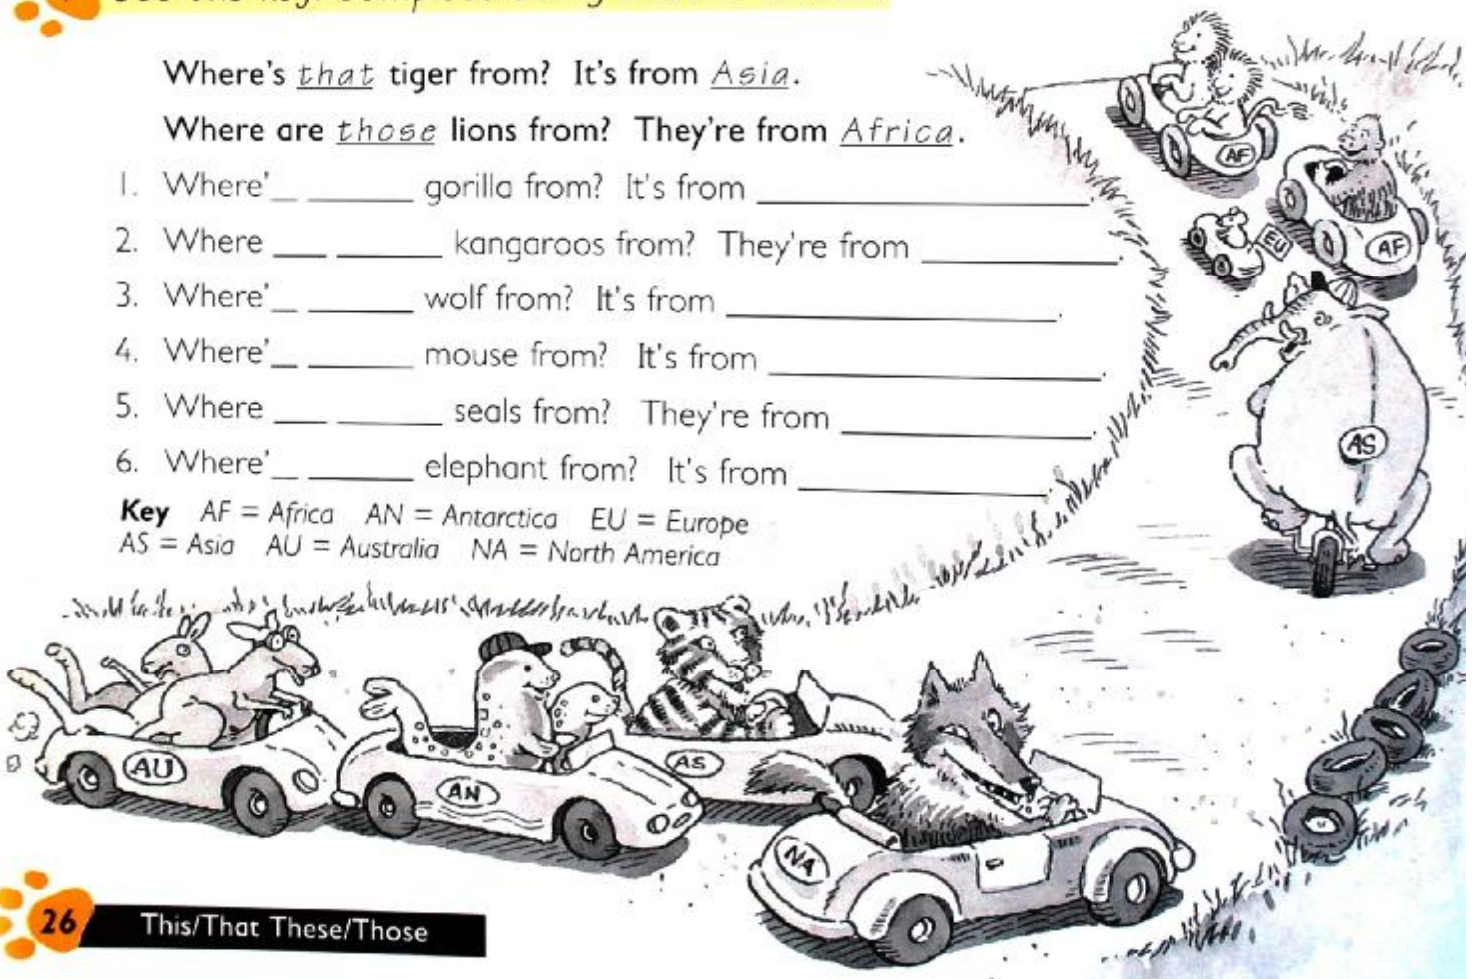 Where's that tiger from? It's from Asia.
Where are those lions from? They're from Africa.
1. Where'_ ____ gorilla from? It's from ____________.
2. Where __ ____ kangaroos from? They're from ________.
3. Where'_ ____ wolf from? It's from ____________.
4. Where'_ ____ mouse from? It's from ____________.
5. Where __ ____ seals from? They're from _________.
6. Where'_ ____ elephant from? It's from _________.
Key AF = Africa AN = Antarctica EU = Europe
AS = Asia AU = Australia NA = North America
AF
EU
AF
AS
AU
AN
AS
NA
26 This/That These/Those